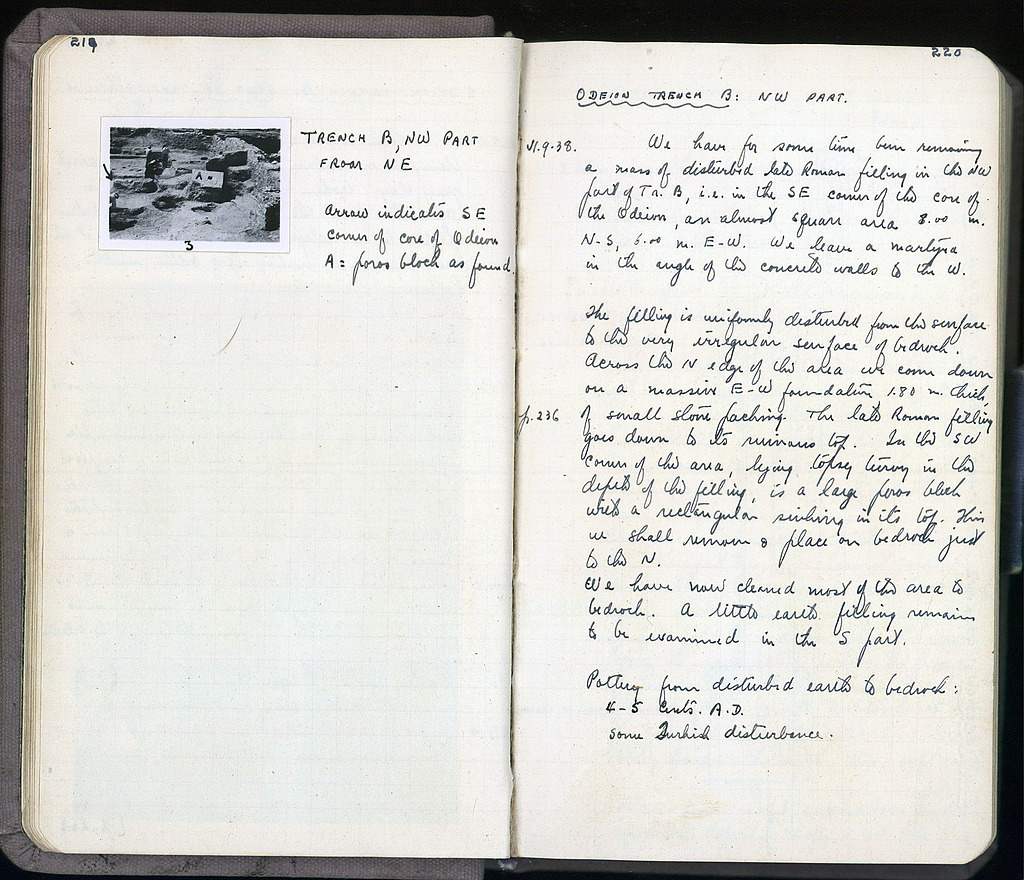 219
A =
3
TRENCH B, NW PART
FROM NE
arrow indicates SE
corner of core of Odeion
A = poros block as found.
220
ODEION TRENCH B: NW PART.
We have for some time been removing
a mass of disturbed late Roman filling in the NW
part of Tr. B, i.e. in the SE corner of the core of
the Odeion, an almost square area 8.00 m.
N-S, 6.00 m. E-W. We leave a martyra
in the angle of the concrete walls to the W.
The filling is uniformly disturbed from the surface
to the very irregular surface of bedrock.
Across the N edge of the area we come down
on a massive E-W foundation 1.80 m. thick,
p. 236
of small stone packing. The late Roman filling
goes down to its ruinous top. In the SW
corner of the area, lying topsy turvy in the
depth of the filling, is a large poros block
with a rectangular sinking in its top. This
we shall remove & place on bedrock just
to the N.
We have now cleaned most of the area to
bedrock. A little earth filling remains
to be examined in the S part.
Pottery from disturbed earth to bedrock:
4-5 cents. A.D.
some Turkish disturbance.